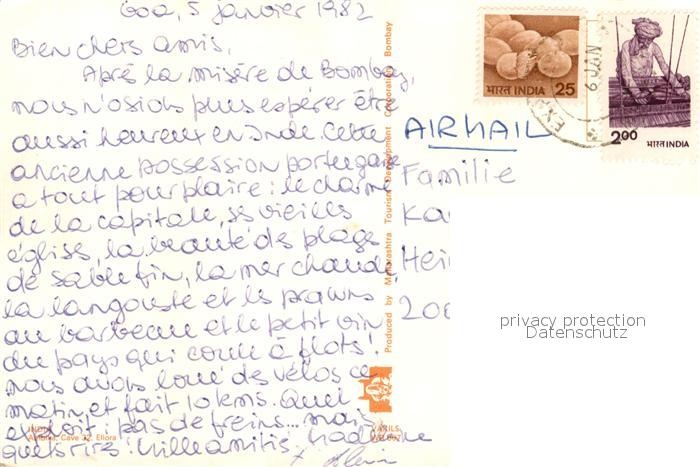 Goa, 5 janvier 1982
Bien chers amis,
Après la misère de Bombay,
nous n'osions plus espérer être
aussi heureux en Inde. Cette
ancienne possession portugaise
a tout pour plaire : le charme
de la capitale, ses vieilles
églises, la beauté des plages
de sable fin, la mer chaude,
la langouste et les prawns
au barbecue et le petit vin
du pays qui coule à flots !
nous avons loué des vélos ce
matin et fait 10 kms. Quel
exploit : pas de freins... mais
quels rires ! Mille amitiés,
INDIA
Cave 32, Ellora
VAKILS
Produced by Maharashtra Tourism Development Corporation Bombay
भारत INDIA 25
2.00
भारत INDIA
AIRMAIL
Familie
Ka
Hei
200
privacy protection
Datenschutz